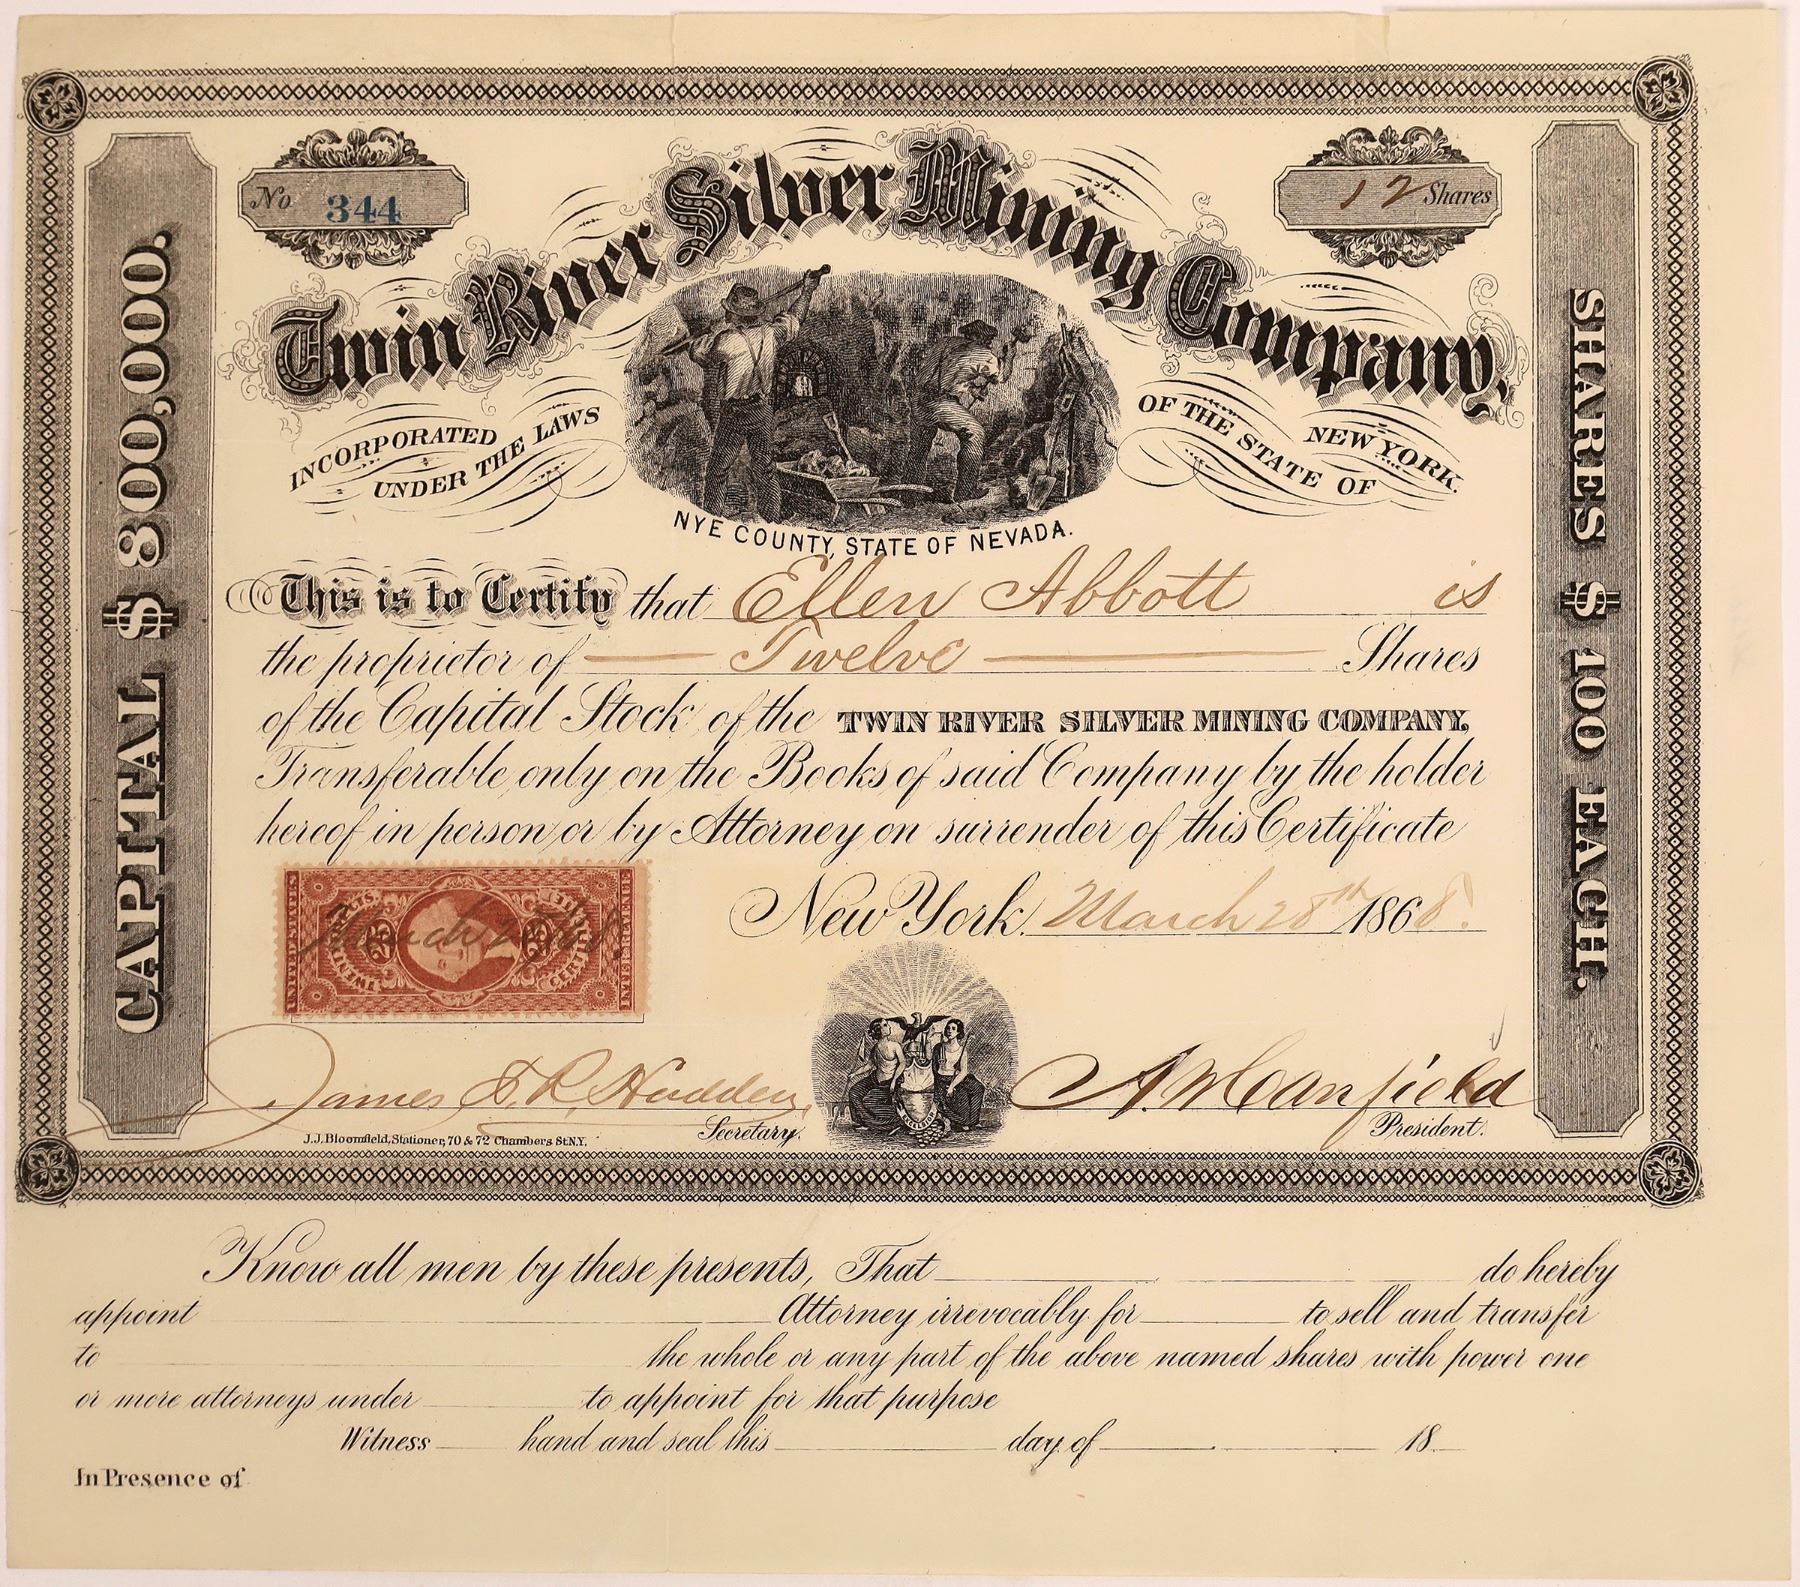 No 344
12 Shares
Twin River Silver Mining Company,
INCORPORATED UNDER THE LAWS OF THE STATE OF NEW YORK.
NYE COUNTY, STATE OF NEVADA.
CAPITAL $800,000.
SHARES $100 EACH.
This is to Certify that Ellen Abbott is
the proprietor of Twelve Shares
of the Capital Stock of the TWIN RIVER SILVER MINING COMPANY,
Transferable only on the Books of said Company by the holder
hereof in person or by Attorney on surrender of this Certificate
New York, March 28th 1868.
UNITED STATES
INTER. REVENUE
TWENTY FIVE CTS.
CERTIFICATE
25
25
March 28th/68
James S. R. Hadden,
Secretary.
A. M. Canfield
President.
J.J. Bloomfield, Stationer, 70 & 72 Chambers St. N.Y.
Know all men by these presents, That do hereby
appoint Attorney irrevocably for to sell and transfer
to the whole or any part of the above named shares with power one
or more attorneys under to appoint for that purpose
Witness hand and seal this day of 18
In Presence of